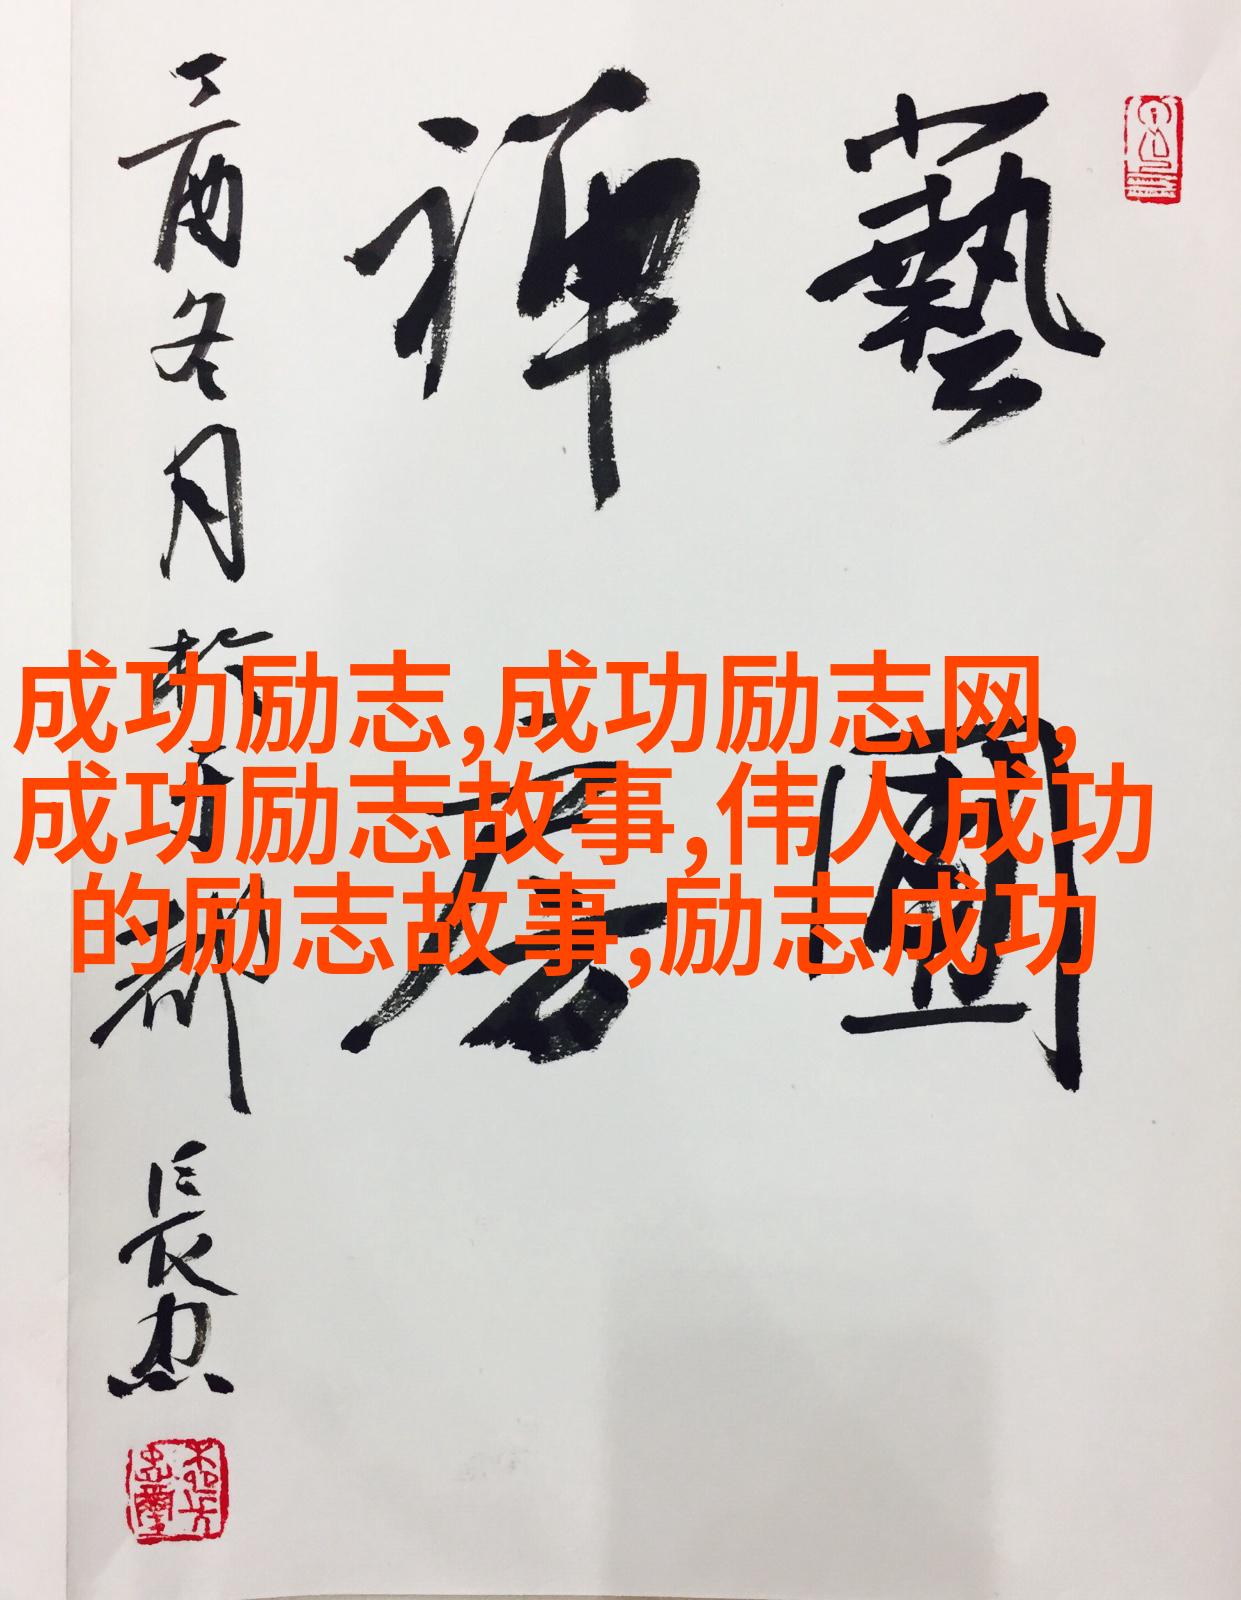 成功励志,成功励志网,
成功励志故事,伟人成功
的励志故事,励志成功
藝
禅
丁酉冬月於都長